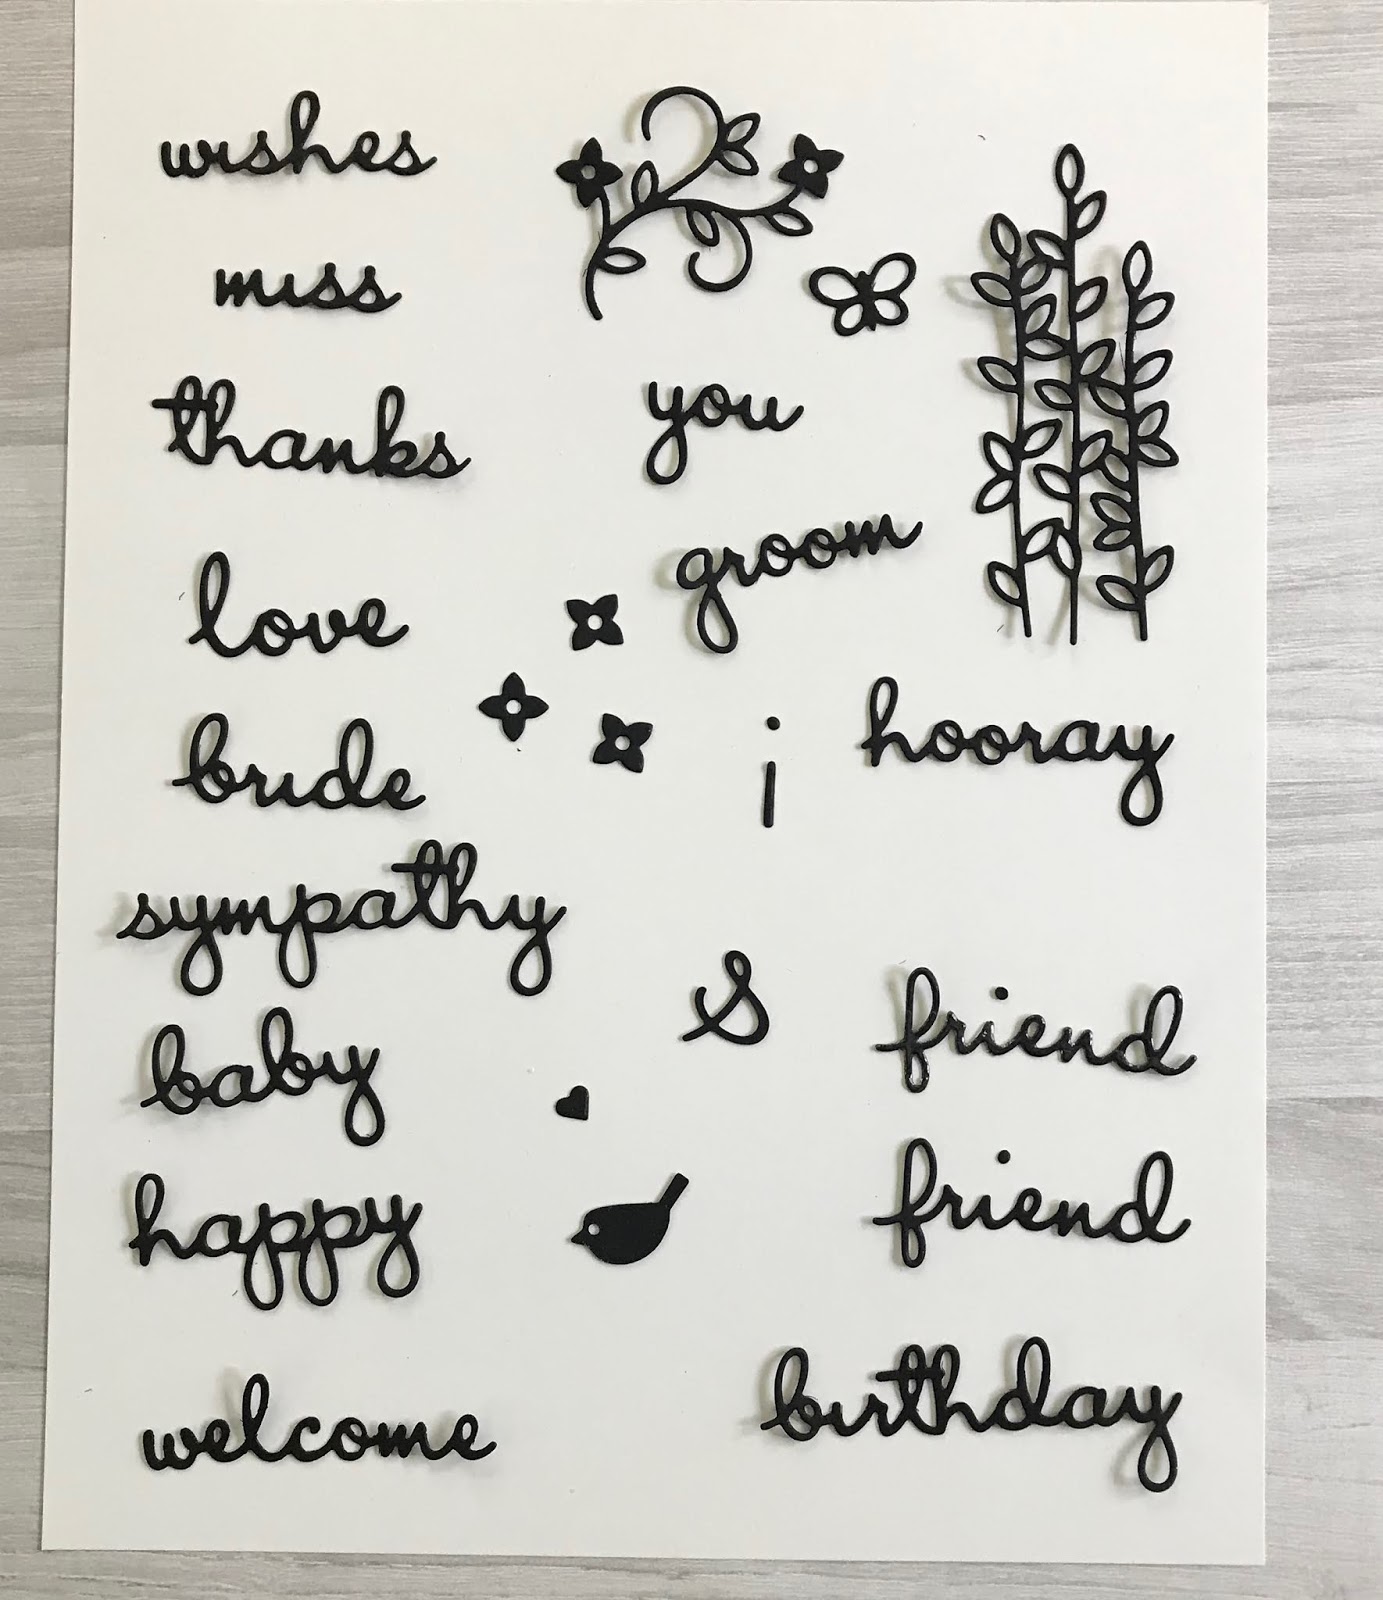 wishes
miss
thanks
you
groom
love
bride
i
hooray
sympathy
S
friend
baby
happy
friend
welcome
birthday